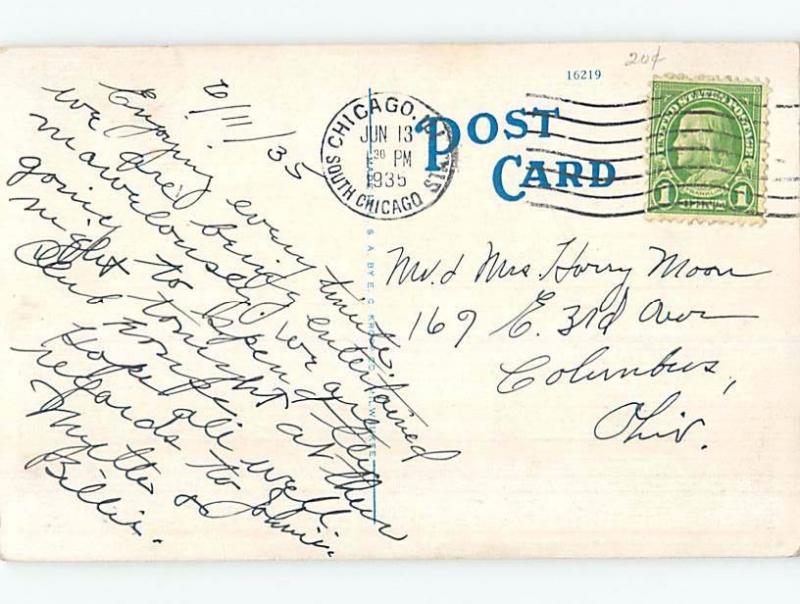 20¢
16219
6/11/35
Enjoying every minute.
we are being entertained
mawelously. we are
going to spend the
night tonight at their
Club house.
Hope all well.
regards to Johnie.
Myrtle &
Billie.
CHICAGO, ILLINOIS
JUN 13
30 PM
1935
SOUTH CHICAGO
POST
CARD
UNITED STATES POSTAGE
1 1
Mr. & Mrs. Harry Moon
169 E. 3rd Ave
Columbus,
Ohio.
U. S. A. BY E. C. KROPP CO. MILWAUKEE